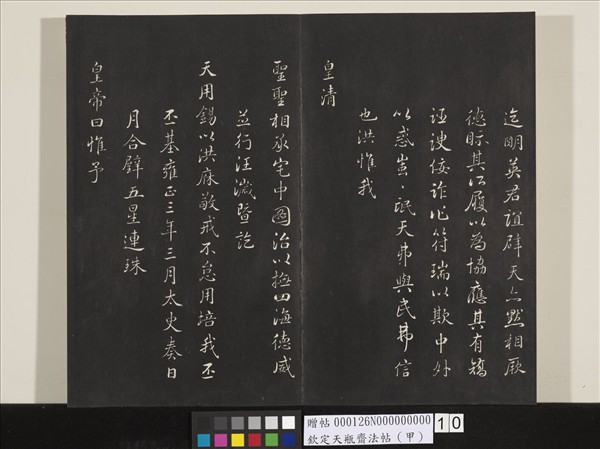 迄明英君誼辟天亦默相厥
德眎其所履以為協應其有矯
誣諛佞詐作符瑞以欺中外
以惑蚩〻氓天弗與民弗信
也洪惟我
皇清
聖聖相承宅中圖治以撫四海德威
並行汪濊暨訖
天用錫以洪庥敬戒不怠用培我丕
丕基雍正三年三月太史奏日
月合璧五星連珠
皇帝曰惟予
贈帖 000126N000000000
欽定天瓶齋法帖（甲）
10